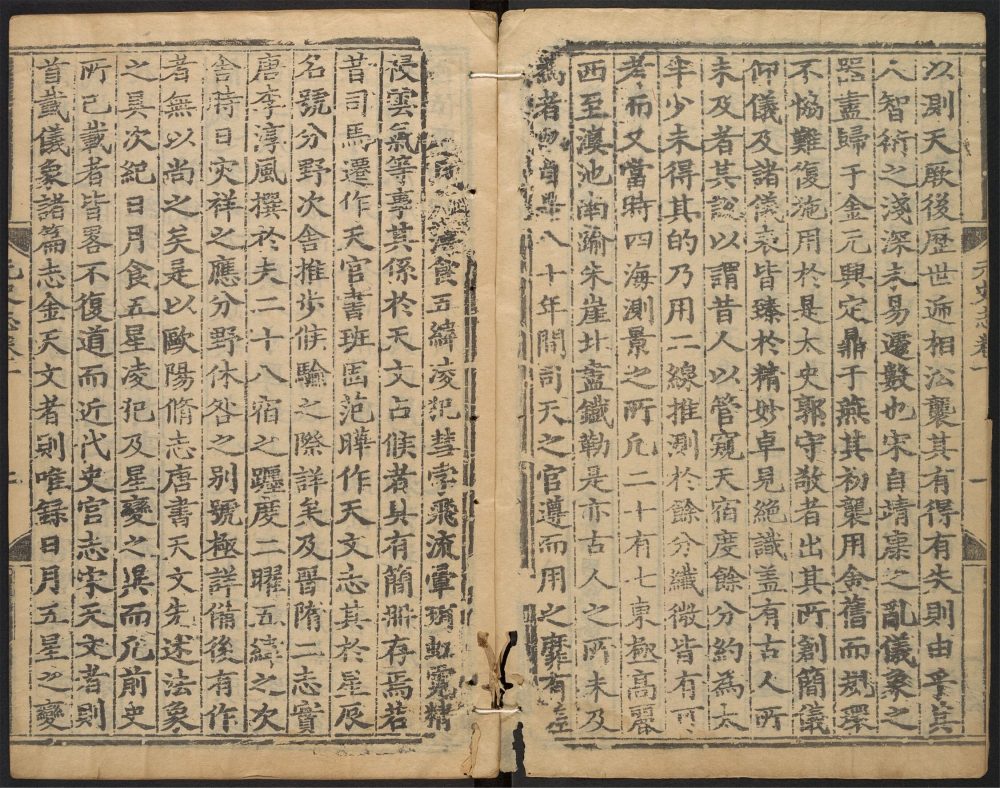 以測天厥後歷世遞相沿襲其有得有失則由乎其
人智術之淺深未易遽數也宋自靖康之亂儀象之
器盡歸于金元興定鼎于燕其初襲用金舊而規環
不協難復施用於是太史郭守敬者出其所創簡儀
仰儀及諸儀表皆臻於精妙卓見絶識盖有古人所
未及者其說以謂昔人以管窺天宿度餘分約為太
半少未得其的乃用二線推測於餘分纖微皆有可
考而又當時四海測景之所凡二十有七東極髙麗
西至滇池南踰朱崖北盡鐵勒是亦古人之所未及
為者也自是八十年間司天之官遵而用之靡有差
食五緯凌犯彗孛飛流暈珥虹霓精
祲雲氣等事其係於天文占候者具有簡册存焉若
昔司馬遷作天官書班固范曄作天文志其於星辰
名號分野次舎推步候驗之際詳矣及晋隋二志實
唐李淳風撰於夫二十八宿之躔度二曜五緯之次
舎時日灾祥之應分野休咎之别號極詳備後有作
者無以尚之矣是以歐陽脩志唐書天文先述法象
之具次紀日月食五星凌犯及星變之異而凡前史
所已載者皆畧不復道而近代史官志宋天文者則
首載儀象諸篇志金天文者則唯録日月五星之變
元史志卷一
一